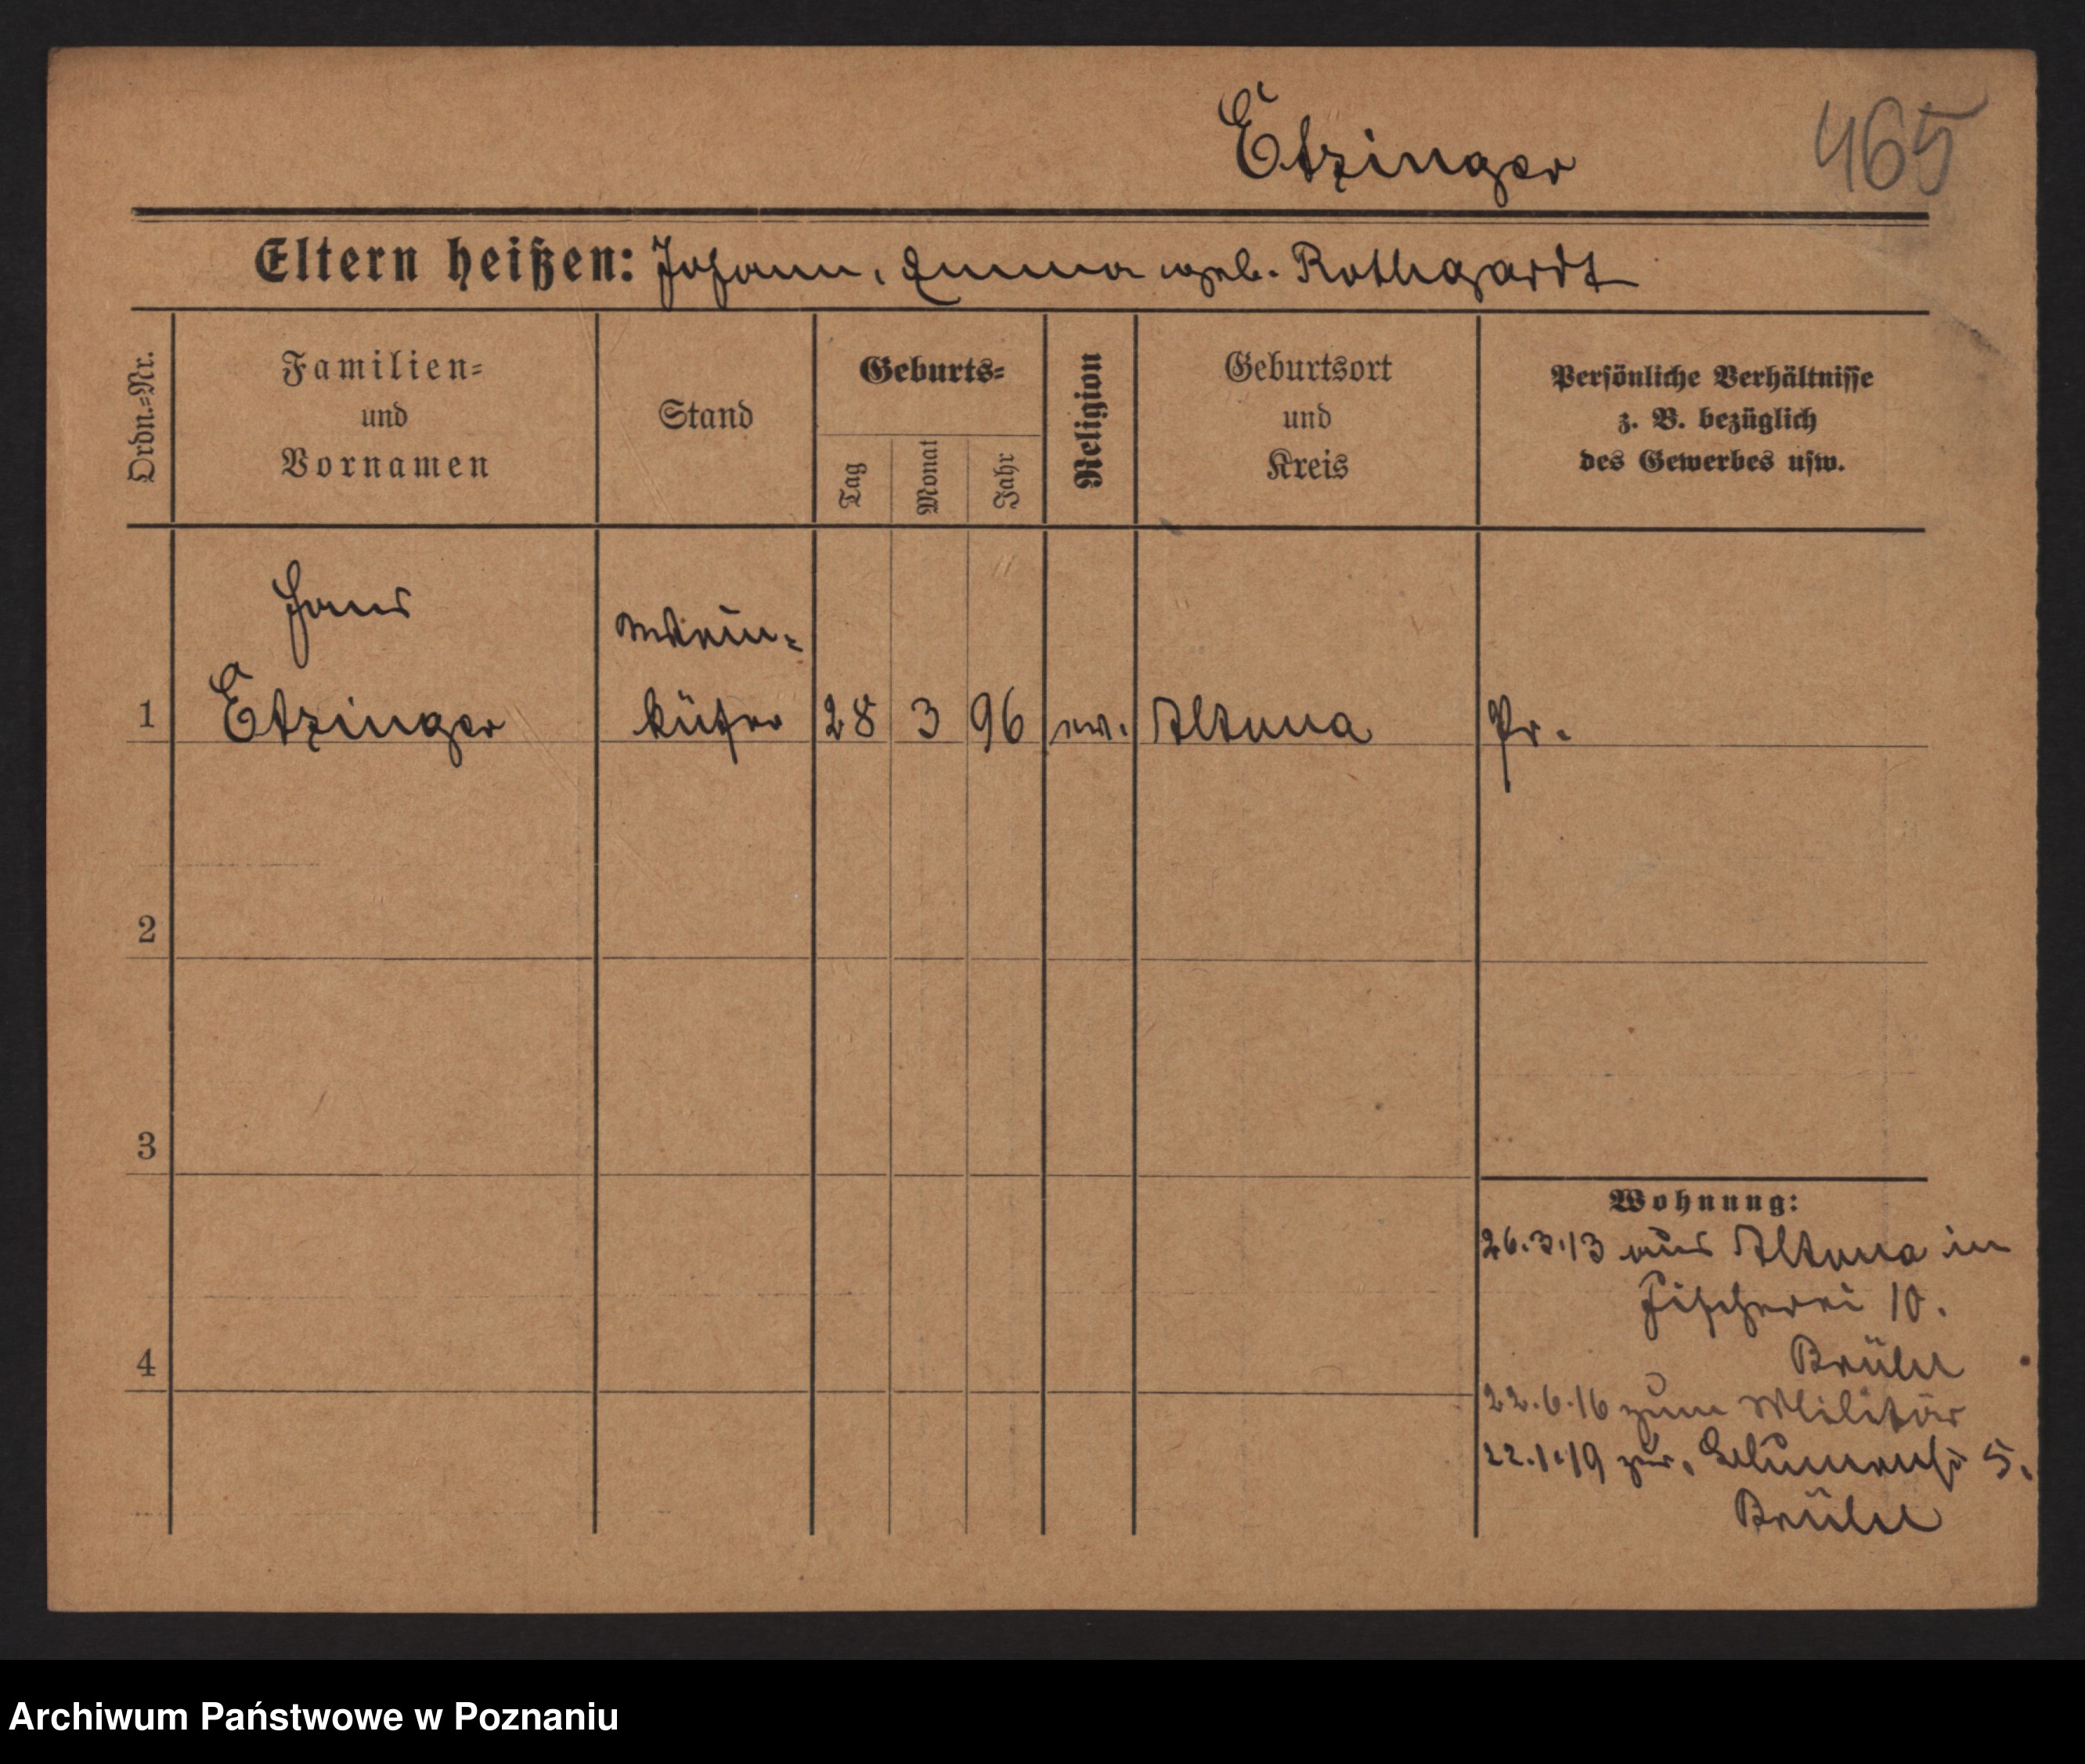 Etzinger 465
Eltern heißen: Johann, Emma geb. Rothgardt
Ordn.=Nr.
Familien=
und
Vornamen
Stand
Geburts=
Tag
Monat
Jahr
Religion
Geburtsort
und
Kreis
Persönliche Verhältnisse
z. B. bezüglich
des Gewerbes usw.
Hans
Wein-
1 Etzinger küfer 28 3 96 ev. Altona Pr.
2
3
Wohnung:
26.3.13 aus Altona in
Fischerei 10.
4
22.6.16 zum Militär
22.1.19 zur. Blumenstr 5.
Archiwum Państwowe w Poznaniu